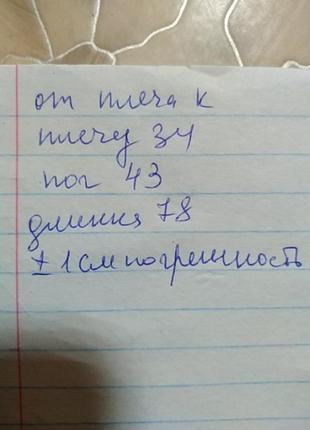 от плеча к
плечу 34
пог 43
длинна 78
± 1 см погрешность